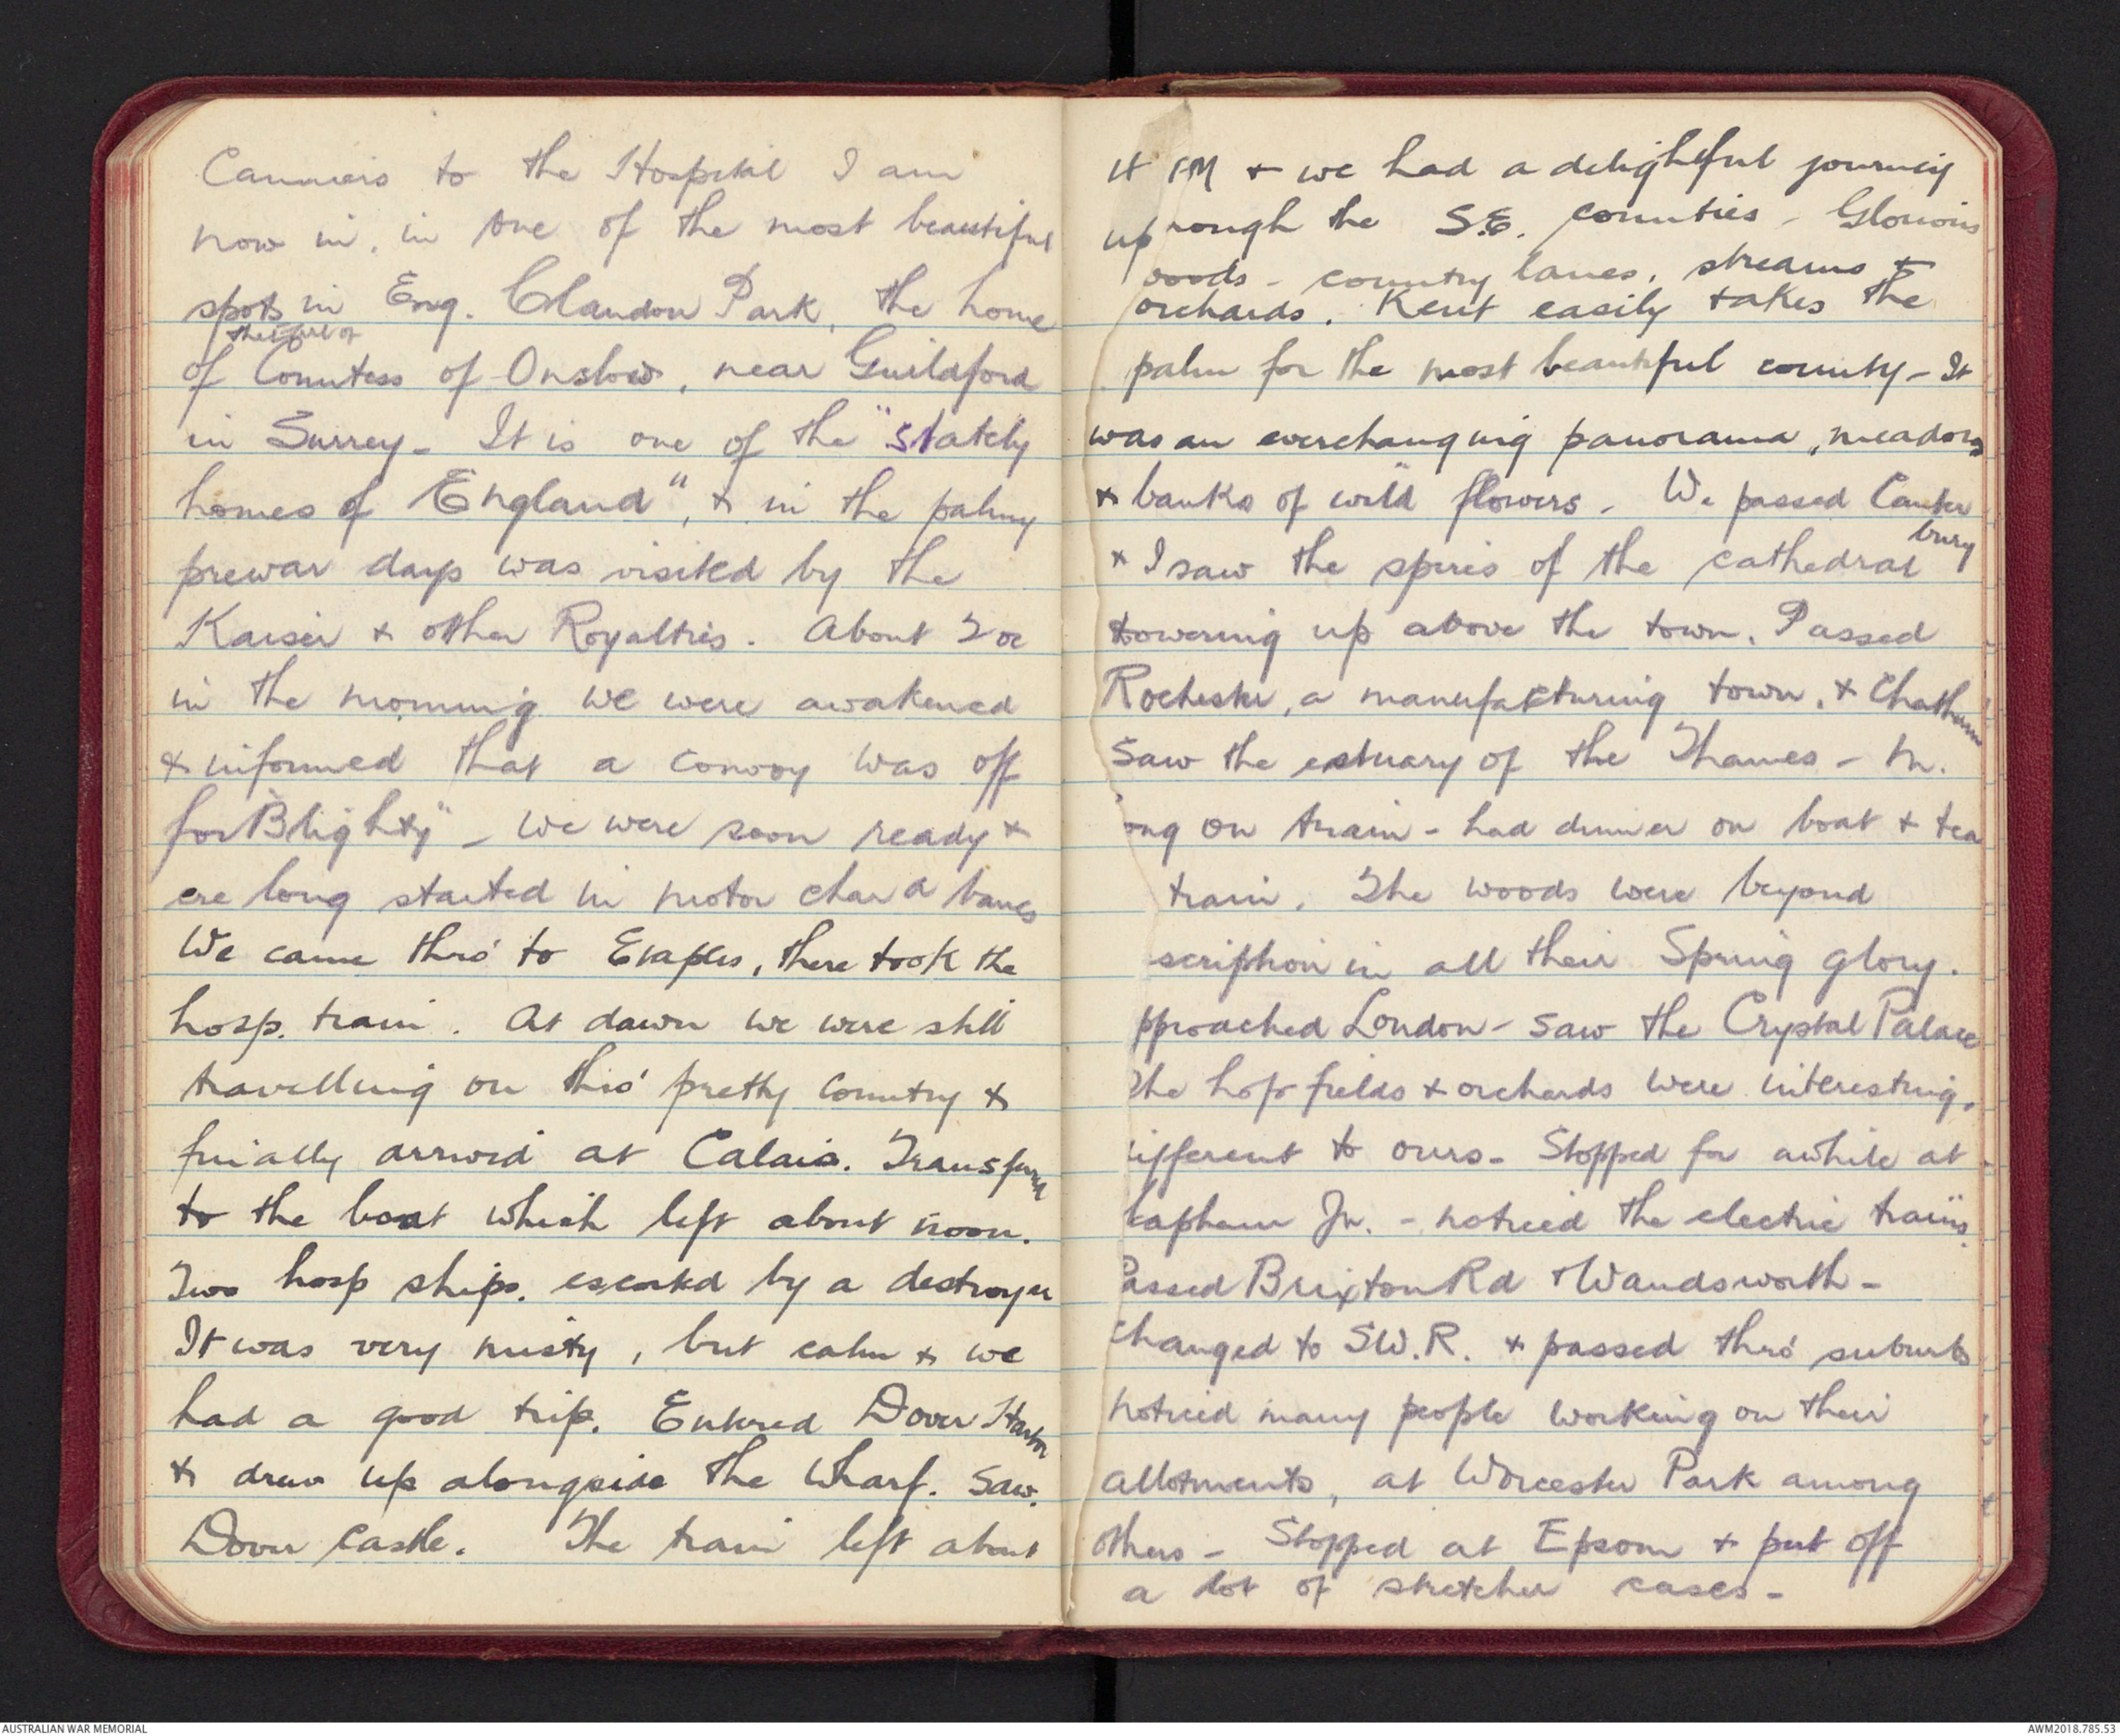 Camiers to the Hospital I am
now in, in one of the most beautiful
spots in Eng. Clandon Park, the home
of Countess of Onslow, near Guildford
in Surrey - It is one of the "stately
homes of England", & in the palmy
prewar days was visited by the
Kaiser & other Royalties. About 2 oc
in the morning we were awakened
& informed that a convoy was off
for "Blighty" - We were soon ready &
ere long started in motor char a bancs
We came thro' to Etaples, there took the
hosp. train. At dawn we were still
travelling on thro' pretty country &
finally arrived at Calais. Transferred
to the boat which left about noon.
Two hosp ships. escorted by a destroyer
It was very misty, but calm & we
had a good trip. Entered Dover Harbor
& drew up alongside the Wharf. Saw
Dover Castle. The train left about
PM & we had a delightful journey
up rough the S.E. counties - Glorious
woods - country lanes, streams &
orchards. Kent easily takes the
palm for the most beautiful county - It
was an everchanging panorama, meadows
& banks of wild flowers. We passed Canter
bury
& I saw the spires of the cathedral
towering up above the town. Passed
Rochester, a manufacturing town, & Chatham
Saw the estuary of the Thames -
ong on train - had dinner on boat & tea
train. The woods were beyond
scription in all their Spring glory.
pproached London - saw the Crystal Palace
The hop fields & orchards were interesting,
ifferent to ours - Stopped for awhile at
lapham Jn. - noticed the electric trains.
Passed Brixton Rd & Wandsworth -
Changed to SW.R. & passed thro' suburbs
Noticed many people working on their
allotments, at Worcester Park among
others - Stopped at Epsom & put off
a lot of stretcher cases -
AUSTRALIAN WAR MEMORIAL
AWM2018.785.53